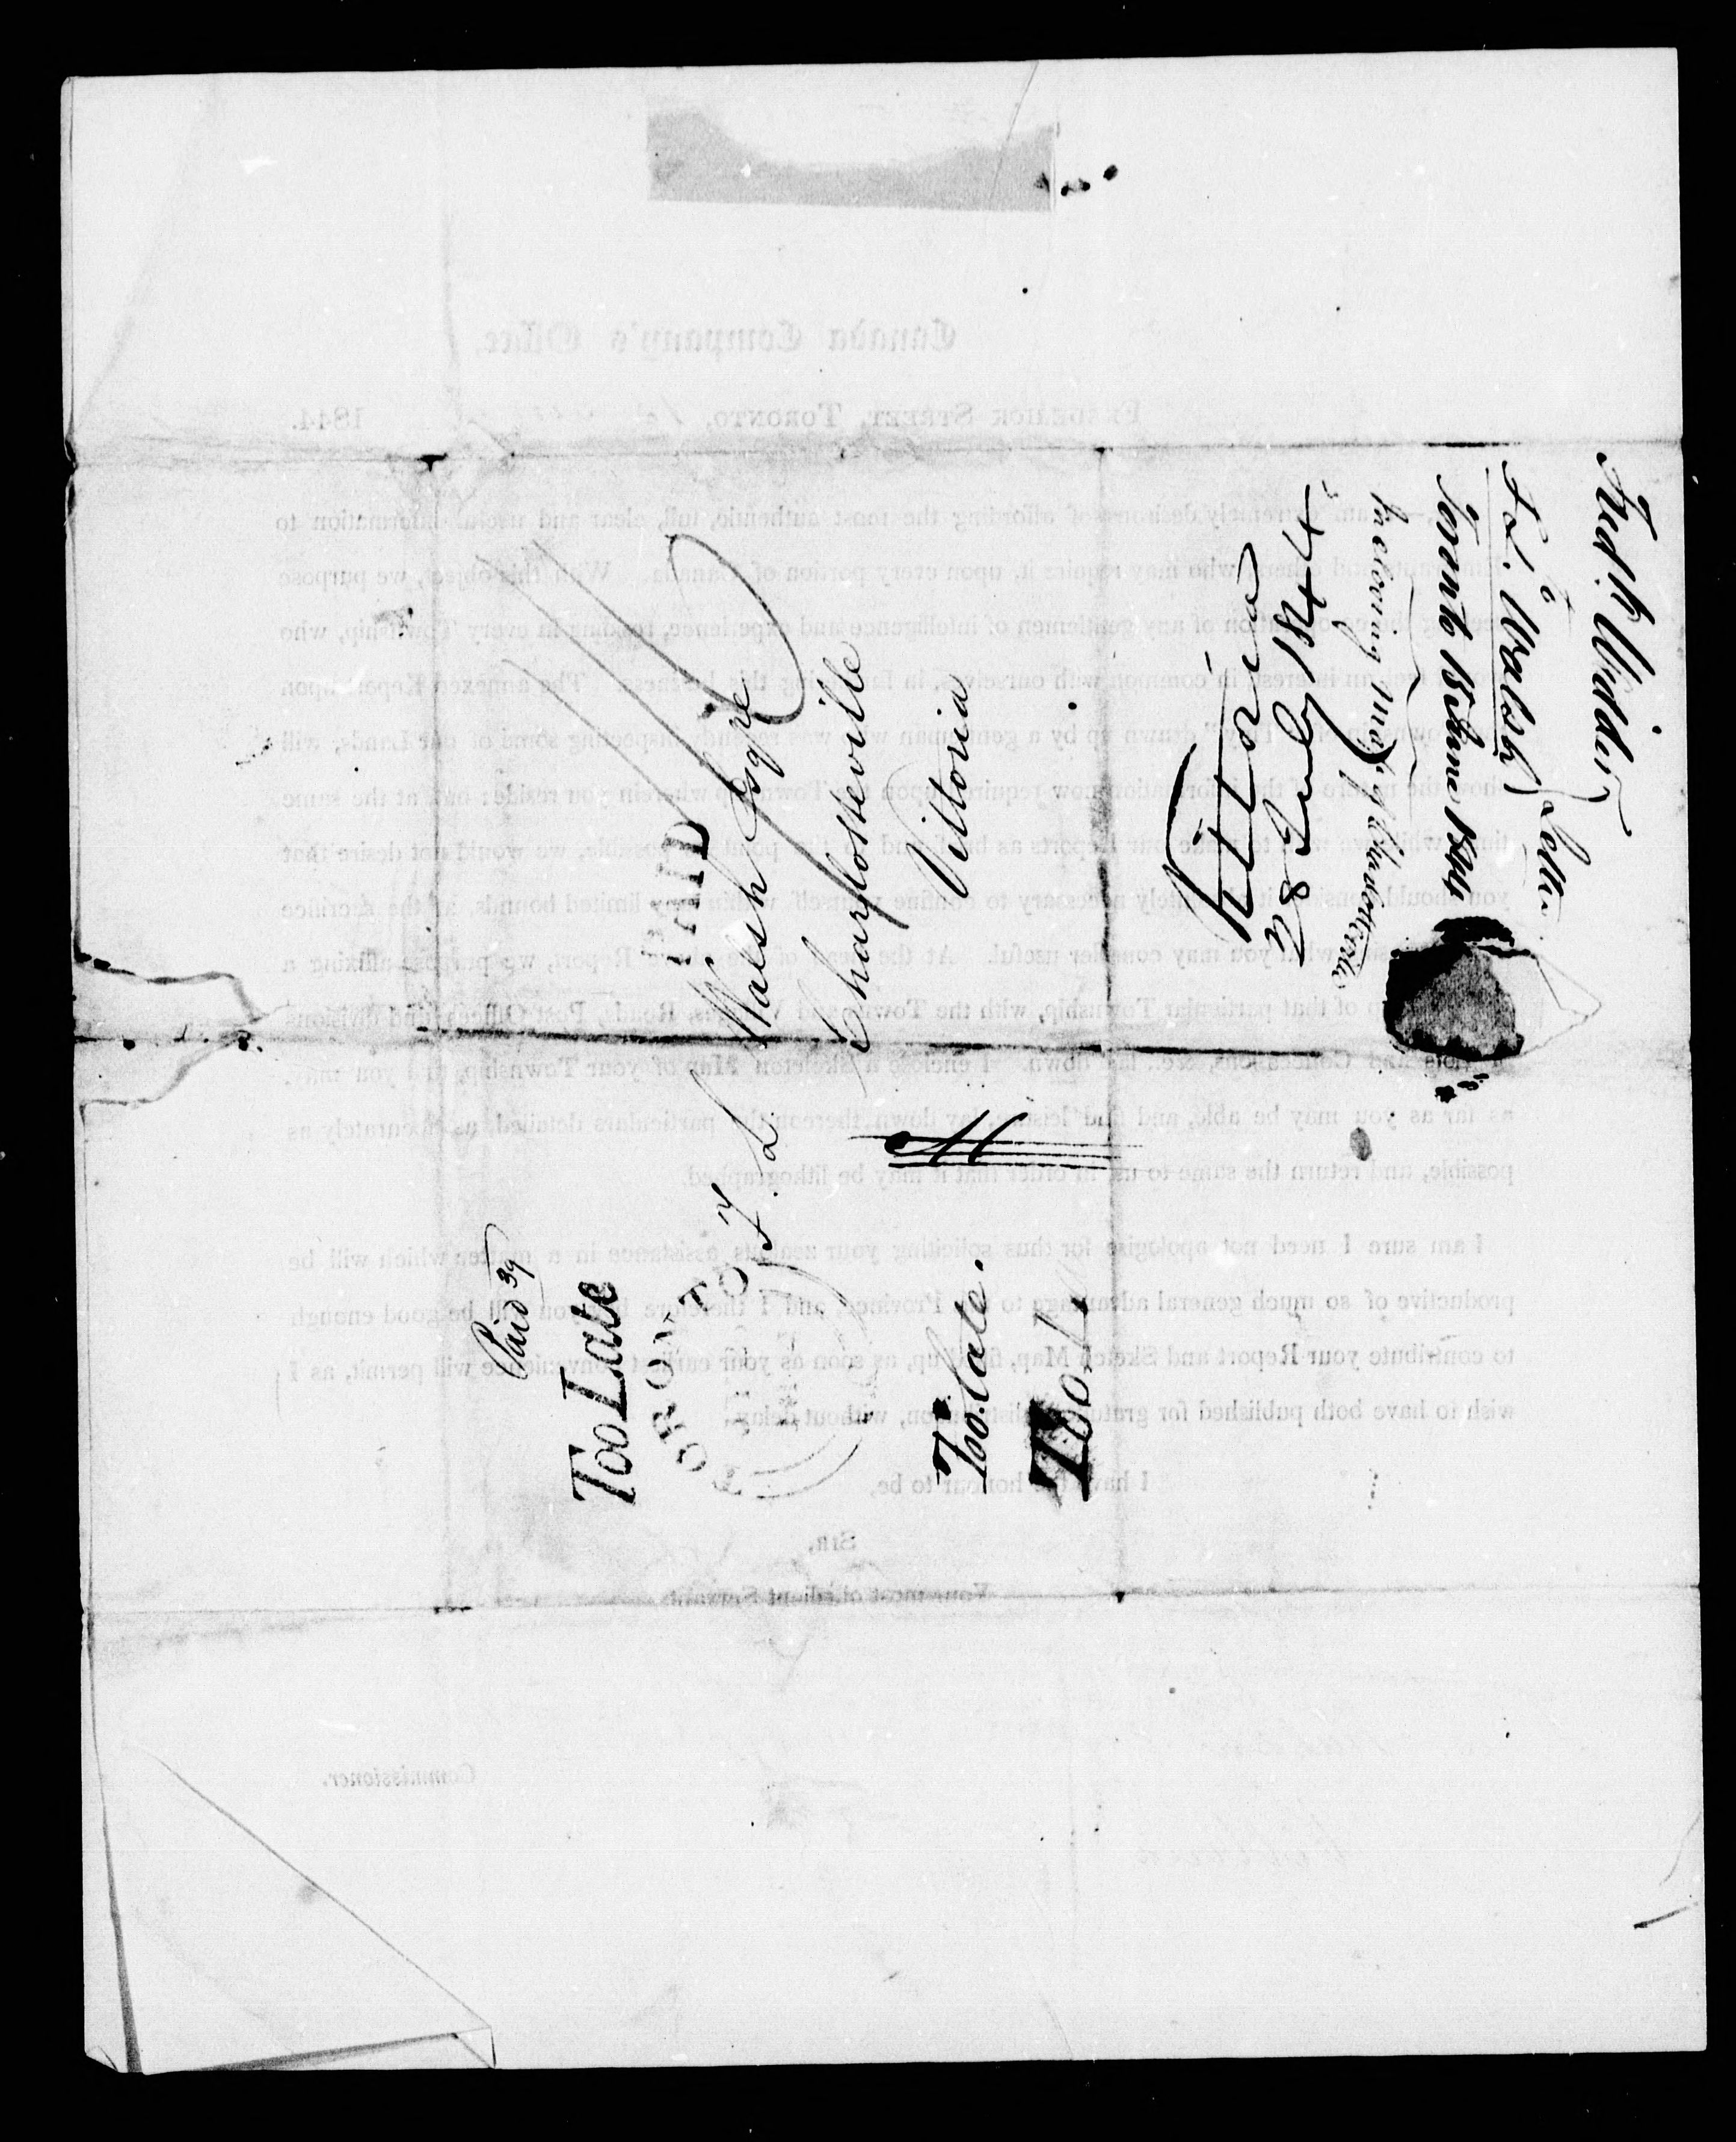 Paid 3d
Too Late
PAID
TORONTO
F. L. Walsh Esqre
Charlotteville
Vittoria
Too late.
Too L
Vittoria
8th July 1844
Fredk Widder
to
F L. Walsh
Letter
Toronto 15 June 1844
Enclosing Map of Charlotteville
Canada Company's Office,
FREDERICK STREET, TORONTO, 1844.
I am extremely desirous of affording the most authentic, full, clear and useful information to
who may require it, upon every portion of Canada. With this object, we purpose
of any gentlemen of intelligence and experience, residing in every Township, who
an interest in common with ourselves, in furthering this business. The annexed Report upon
drawn up by a gentleman who was recently inspecting some of our Lands, will
show the nature of the information now required upon the Township wherein you reside; but at the same
time, whilst we wish to make our Reports as brief and to the point as possible, we would not desire that
you should consider it absolutely necessary to confine yourself within any limited bounds, at the sacrifice
which you may consider useful. At the head of Report, we purpose affixing a
of that particular Township, with the Towns and Villages, Roads, Post Offices, and divisions
Lots and Concessions, &c. laid down. I enclose a Skeleton Map of your Township, and you may,
as far as you may be able, and find leisure, lay down thereon the particulars detailed, as accurately as
possible, and return the same to us, in order that it may be lithographed.
I am sure I need not apologise for thus soliciting your zealous assistance in a matter which will be
productive of so much general advantage to the Province, and I therefore you will be good enough
to contribute your Report and Sketch Map, filled up, as soon as your earliest convenience will permit, as I
wish to have both published for gratuitous distribution, without delay.
I have the honour to be,
SIR,
Your most obedient Servant,
Commissioner.